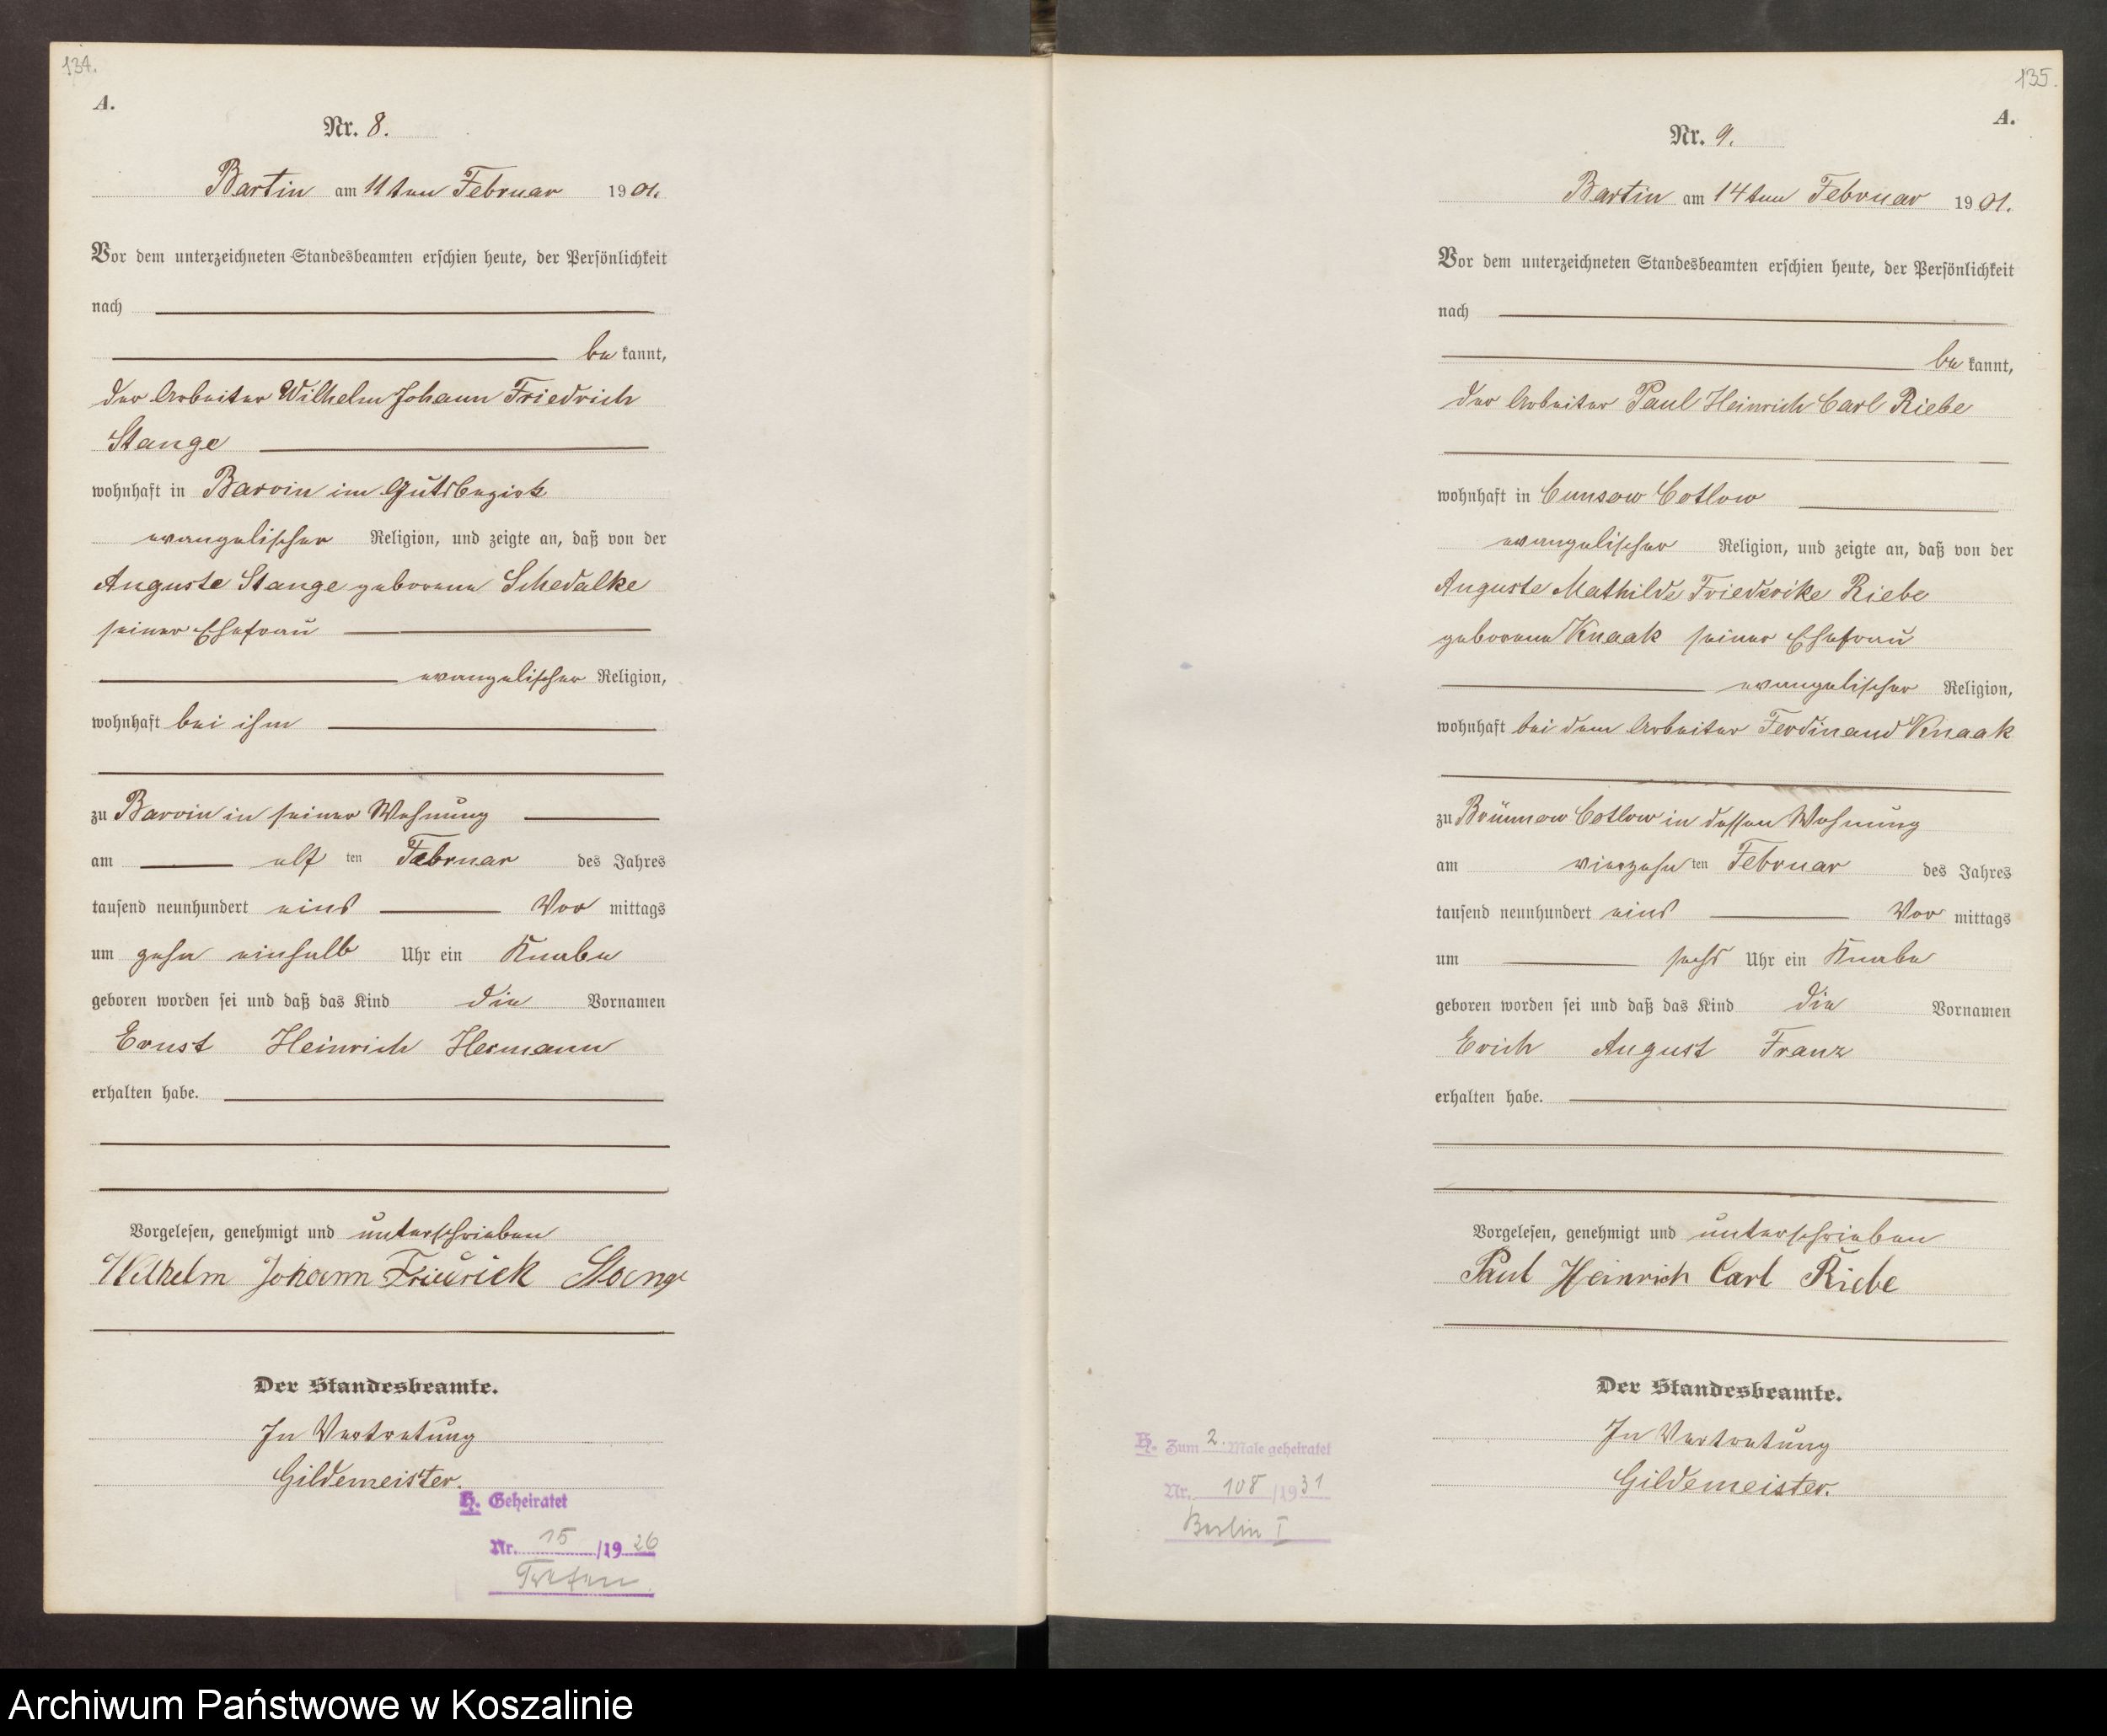 134.
A.
Nr. 8.
Bartin am 11ten Februar 1901.
Vor dem unterzeichneten Standesbeamten erschien heute, der Persönlichkeit
nach
be kannt,
der Arbeiter Wilhelm Johann Friedrich
Stange
wohnhaft in Barvin im Gutsbezirk
evangelischer Religion, und zeigte an, daß von der
Auguste Stange geborene Schedalke
seiner Ehefrau
evangelischer Religion,
wohnhaft bei ihm
zu Barvin in seiner Wohnung
am elf ten Februar des Jahres
tausend neunhundert eins Vor mittags
um zehn einhalb Uhr ein Knabe
geboren worden sei und daß das Kind die Vornamen
Ernst Heinrich Hermann
erhalten habe.
Vorgelesen, genehmigt und unterschrieben
Wilhelm Johann Friedrich Stange
Der Standesbeamte.
In Vertretung
Gildemeister.
H. Geheiratet
Nr. 15 /1926
135.
A.
Nr. 9.
Bartin am 14ten Februar 1901.
Vor dem unterzeichneten Standesbeamten erschien heute, der Persönlichkeit
nach
be kannt,
der Arbeiter Paul Heinrich Carl Riebe
wohnhaft in Cunsow Cotlow
evangelischer Religion, und zeigte an, daß von der
Auguste Mathilde Friederike Riebe
geborene Knaak seiner Ehefrau
evangelischer Religion,
wohnhaft bei dem Arbeiter Ferdinand Knaak
zu Brünnow Cotlow in dessen Wohnung
am vierzehn ten Februar des Jahres
tausend neunhundert eins Vor mittags
um sechs Uhr ein Knabe
geboren worden sei und daß das Kind die Vornamen
Erich August Franz
erhalten habe.
Vorgelesen, genehmigt und unterschrieben
Paul Heinrich Carl Riebe
Der Standesbeamte.
In Vertretung
Gildemeister.
H. Zum 2. Male geheiratet
Nr. 108 /1931
Berlin I
Archiwum Państwowe w Koszalinie